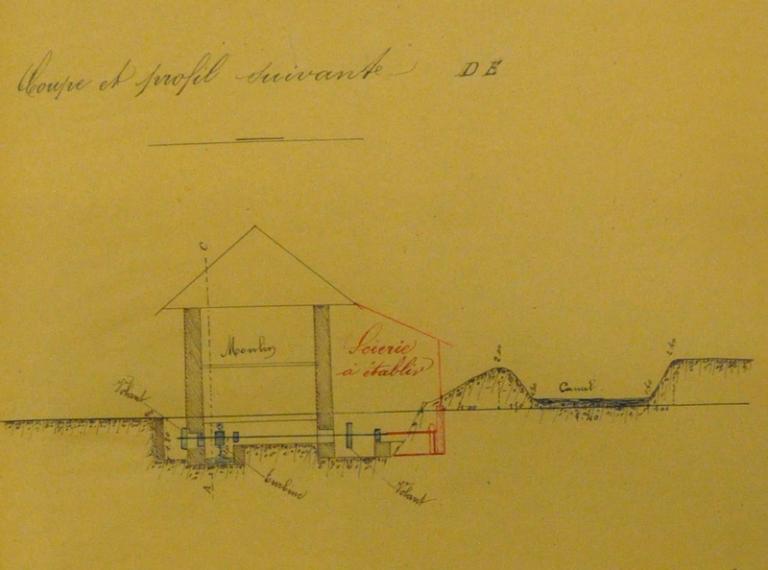 Coupe et profil suivante DE
C
Moulin
Scierie
à établir
Volant
Canal
A
Turbine
Volant